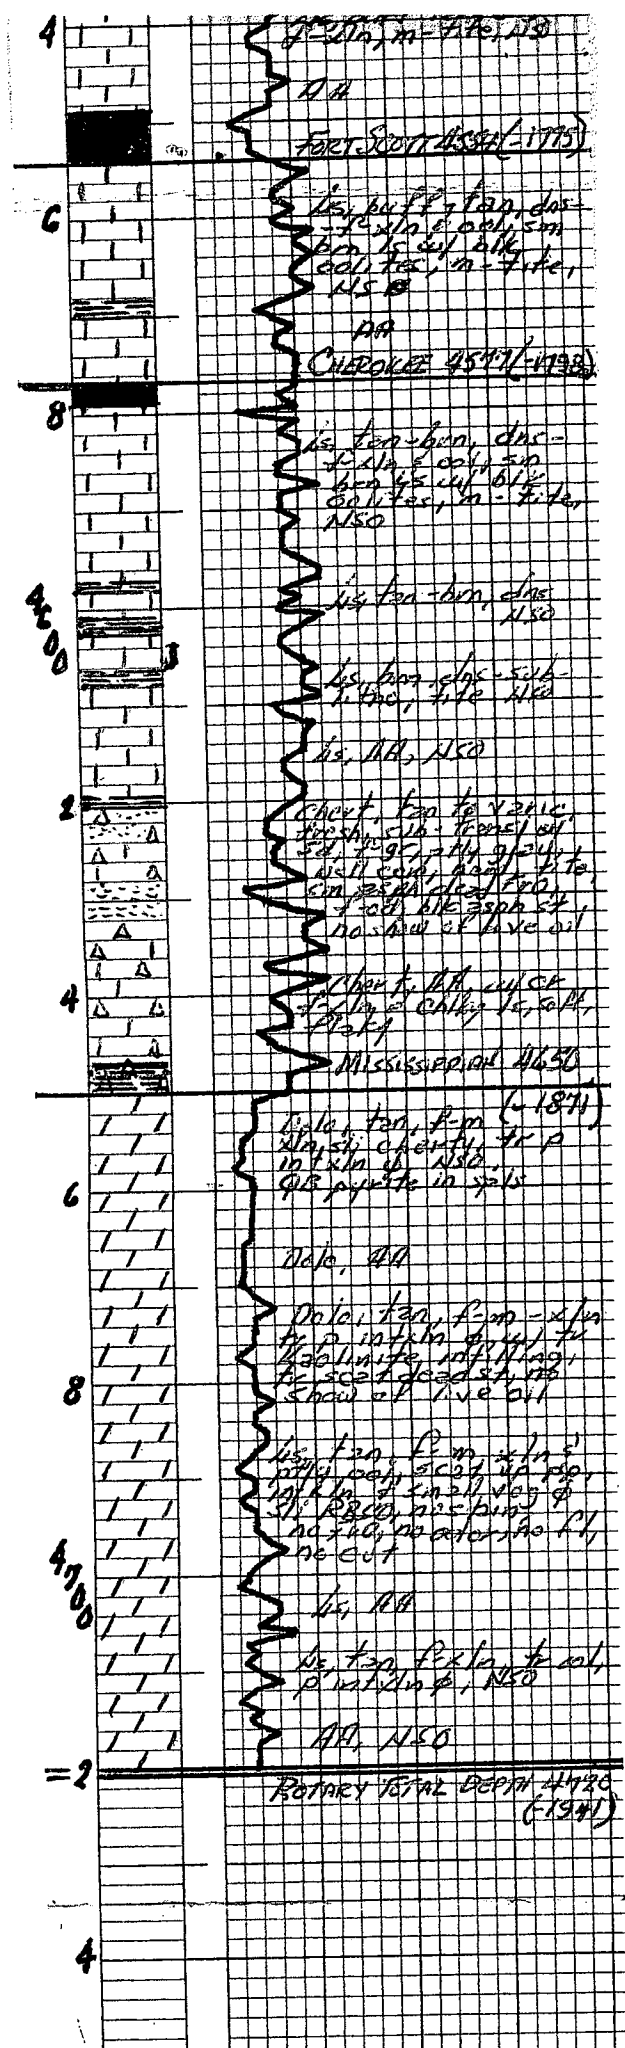 4
f-xln, m-tite, NS
AA
FORT SCOTT 4554 (-1775)
6
Ls, buff-tan, dns-
f-xln & ool, sm
brn ls w/ blk
oolites, m-tite,
NSO
AA
CHEROKEE 4577 (-1798)
8
Ls, tan-brn, dns-
f-xln & ool, sm
brn ls w/ blk
oolites, m-tite,
NSO
Ls, tan-brn, dns
NSO
4600
Ls, brn, dns-sub-
litho, tite NSO
Ls, AA, NSO
2
Chert, tan to varic,
fresh, sub-transl w/
sd, f-gr, ptly glau,
well cem, tite,
sm asph dead
blk asph st,
no show of live oil
Chert, AA, w/ cr
f-xln & chlky ls, soft,
flaky
4
MISSISSIPPIAN 4650
(-1871)
Dolo, tan, f-m
xln, sli cherty, tr p
intxln φ, NSO,
pyrite in spls
6
Dolo, AA
Dolo, tan, f-m-xln
tr p intxln φ, w/ tr
kaolinite infilling,
tr scat dead st, no
show of live oil
8
Ls, tan, f-m xln &
ptly ool, scat
intxln & small vug φ
sli
no odor, no fl,
no cut
4700
Ls, AA
Ls, tan, f-xln, tr ool,
p intxln φ, NSO
AA, NSO
=2
ROTARY TOTAL DEPTH 4720
(-1941)
4